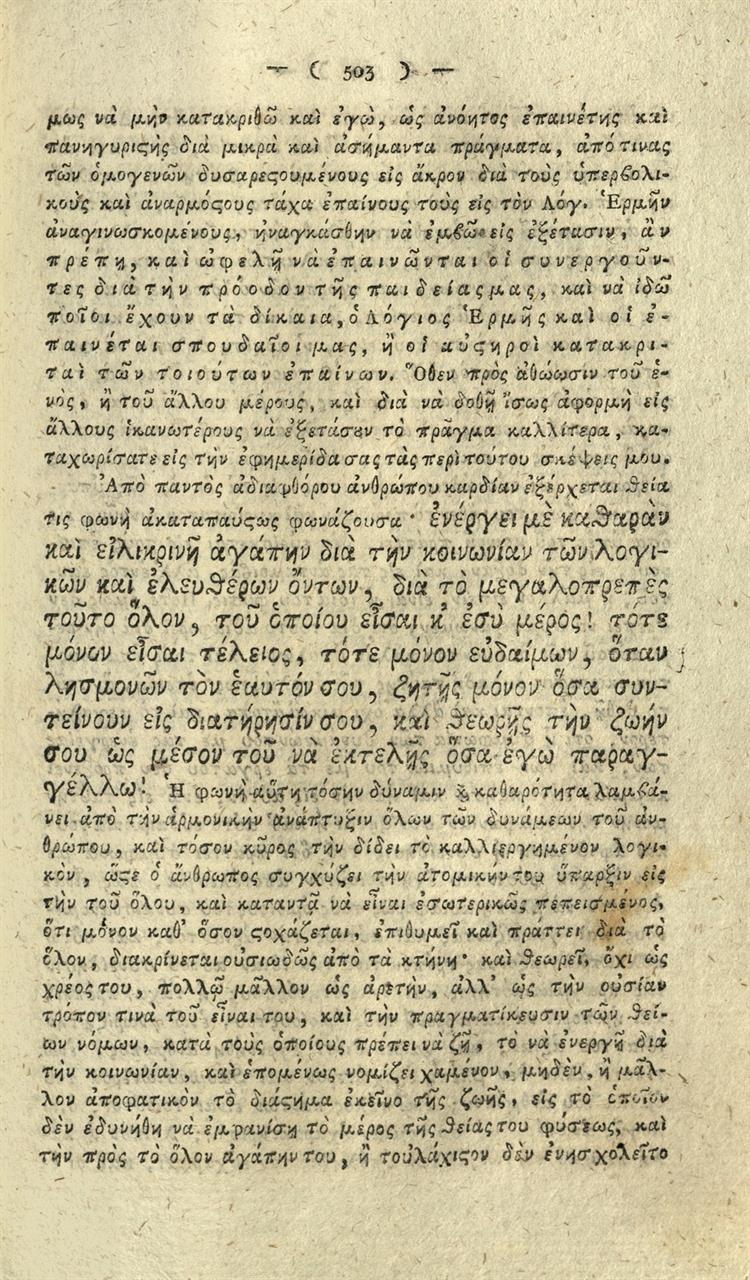 — ( 503 ) —
μως νὰ μὴν κατακριθῶ καὶ ἐγὼ, ὡς ἀνόητος ἐπαινέτης καὶ
πανηγυριϛὴς διὰ μικρὰ καὶ ἀσήμαντα πράγματα, ἀπό τινας
τῶν ὁμογενῶν δυσαρεϛουμένους εἰς ἄκρον διὰ τοὺς ὑπερβολι-
κοὺς καὶ ἀναρμόϛους τάχα ἐπαίνους τοὺς εἰς τὸν Λόγ. Ἑρμῆν
ἀναγινωσκομένους, ἠναγκάσθην νὰ ἐμβῶ εἰς ἐξέτασιν, ἂν
πρέπῃ, καὶ ὠφελῇ νὰ ἐπαινῶνται οἱ συνεργοῦν-
τες διὰ τὴν πρόοδον τῆς παιδείας μας, καὶ νὰ ἰδῶ
ποῖοι ἔχουν τὰ δίκαια, ὁ Λόγιος Ἑρμῆς καὶ οἱ ἐ-
παινέται σπουδαῖοί μας, ἢ οἱ αὐϛηροὶ κατακρι-
ταὶ τῶν τοιούτων ἐπαίνων. Ὅθεν πρὸς ἀθώωσιν τοῦ ἑ-
νὸς, ἢ τοῦ ἄλλου μέρους, καὶ διὰ νὰ δοθῇ ἴσως ἀφορμὴ εἰς
ἄλλους ἱκανωτέρους νὰ ἐξετάσȣν τὸ πρᾶγμα καλλίτερα, κα-
ταχωρίσατε εἰς τὴν ἐφημερίδα σας τὰς περὶ τούτου σκέψεις μου.
Ἀπὸ παντὸς ἀδιαφθόρου ἀνθρώπου καρδίαν ἐξέρχεται θεία
τις φωνὴ ἀκαταπαύϛως φωνάζουσα· ἐνέργει μὲ καθαρὰν
καὶ εἰλικρινῆ ἀγάπην διὰ τὴν κοινωνίαν τῶν λογι-
κῶν καὶ ἐλευθέρων ὄντων, διὰ τὸ μεγαλοπρεπὲς
τοῦτο ὅλον, τοῦ ὁποίου εἶσαι κ' ἐσὺ μέρος! τότε
μόνον εἶσαι τέλειος, τότε μόνον εὐδαίμων, ὅταν
λησμονῶν τὸν ἑαυτόν σου, ζητῇς μόνον ὅσα συν-
τείνουν εἰς διατήρησίν σου, καὶ θεωρῇς τὴν ζωήν
σου ὡς μέσον τοῦ νὰ ἐκτελῇς ὅσα ἐγὼ παραγ-
γέλλω! Ἡ φωνὴ αὕτη τόσην δύναμιν ϗ καθαρότητα λαμβά-
νει ἀπὸ τὴν ἁρμονικὴν ἀνάπτυξιν ὅλων τῶν δυνάμεων τοῦ ἀν-
θρώπου, καὶ τόσον κῦρος τὴν δίδει τὸ καλλιεργημένον λογι-
κὸν, ὥϛε ὁ ἄνθρωπος συγχύζει τὴν ἀτομικήν του ὕπαρξιν εἰς
τὴν τοῦ ὅλου, καὶ καταντᾷ νὰ εἶναι ἐσωτερικῶς πεπεισμένος,
ὅτι μόνον καθ' ὅσον ϛοχάζεται, ἐπιθυμεῖ καὶ πράττει διὰ τὸ
ὅλον, διακρίνεται οὐσιωδῶς ἀπὸ τὰ κτήνη· καὶ θεωρεῖ, ὄχι ὡς
χρέος του, πολλῷ μᾶλλον ὡς ἀρετὴν, ἀλλ' ὡς τὴν οὐσίαν
τρόπον τινὰ τοῦ εἶναι του, καὶ τὴν πραγματίκευσιν τῶν θεί-
ων νόμων, κατὰ τοὺς ὁποίους πρέπει νὰ ζῇ, τὸ νὰ ἐνεργῇ διὰ
τὴν κοινωνίαν, καὶ ἑπομένως νομίζει χαμένον, μηδὲν, ἢ μᾶλ-
λον ἀποφατικὸν τὸ διάϛημα ἐκεῖνο τῆς ζωῆς, εἰς τὸ ὁποῖον
δὲν ἐδυνήθη νὰ ἐμφανίσῃ τὸ μέρος τῆς θείας του φύσεως, καὶ
τὴν πρὸς τὸ ὅλον ἀγάπην του, ἢ τοὐλάχιϛον δὲν ἐνησχολεῖτο